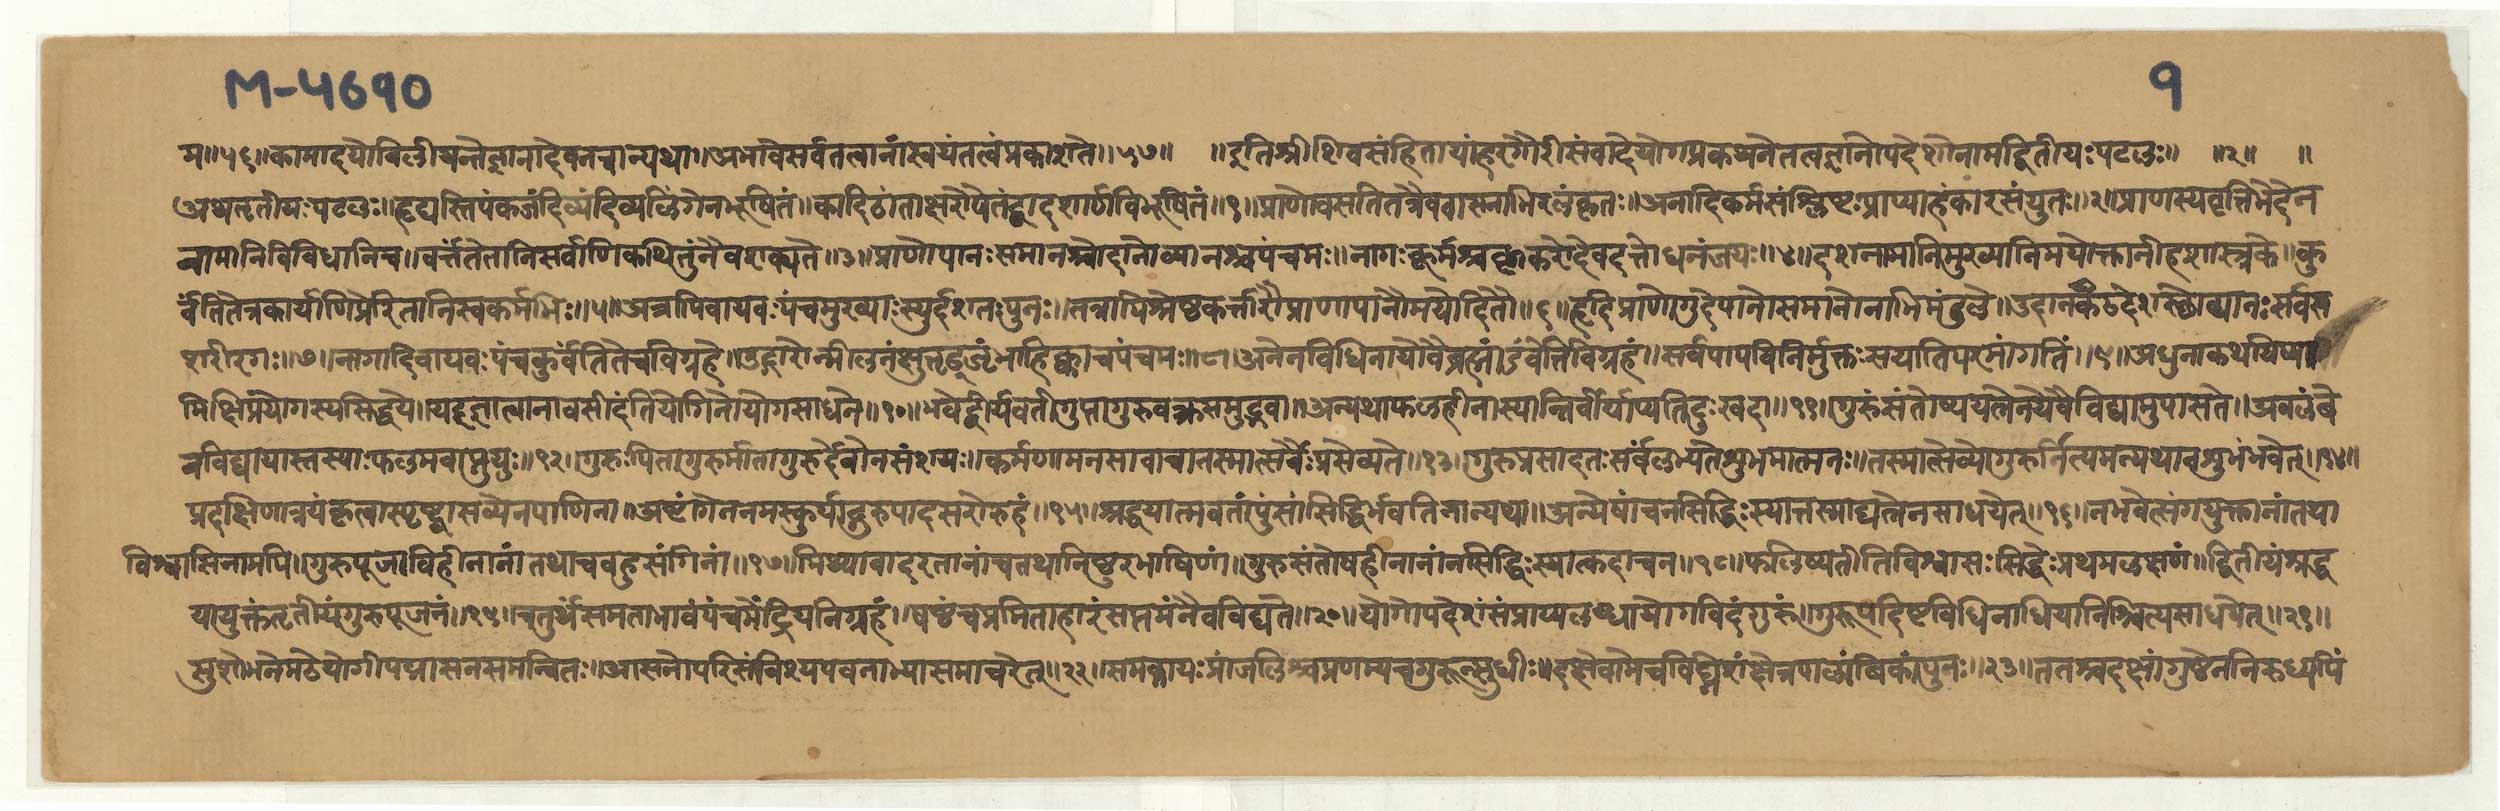 M-५6१0
१
म॥५६॥कामादयोविलीयन्तेज्ञानादेवनचान्यथा॥अभावेसर्वतत्वानांस्वयंतत्वंप्रकाशते॥५७॥ ॥इतिश्रीशिवसंहितायांहरगौरीसंवादेयोगप्रकथनेतत्वज्ञानोपदेशोनामद्वितीयःपटलः॥ ॥२॥ ॥
अथतृतीयःपटलः॥हृद्यस्तिपंकजंदिव्यंदिव्यलिंगेनभूषितं॥कादिठांताक्षरोपेतंद्वादशार्णविभूषितं॥१॥प्राणोवसतितत्रैववासनाभिरलंकृतः॥अनादिकर्मसंश्लिष्टःप्राप्याहंकारसंयुतः॥२॥प्राणस्यवृत्तिभेदेन
नामानिविविधानिच॥वर्त्तंतेतानिसर्वाणिकथितुंनैवशक्यते॥३॥प्राणोपानःसमानश्चोदानोव्यानश्चपंचमः॥नागःकूर्मश्चकृकरोदेवदत्तोधनंजयः॥४॥दशनामानिमुख्यानिमयोक्तानीहशास्त्रके॥कु
र्वंतितेत्रकार्याणिप्रेरितानिस्वकर्मभिः॥५॥अत्रापिवायवःपंचमुख्याःस्युर्दशतःपुनः॥तत्रापिश्रेष्टकर्त्तारौप्राणापानौमयोदितौ॥६॥हृदिप्राणोगुदेपानोसमानोनाभिमंडले॥उदानकंठदेशस्थोव्यानःसर्वत्त
शरीरगः॥७॥नागादिवायवःपंचकुर्वंतितेचविग्रहे॥उद्गारोन्मीलनंक्षुत्तृड्जृंभाहिक्काचपंचमः॥८॥अनेनविधिनायोवैब्रह्मांडंवेत्तिविग्रहं॥सर्वपापविनिर्मुक्तःसयातिपरमांगतिं॥९॥अधुनाकथयिष्या
मिक्षिप्रंयोगस्यसिद्धये॥यद्ज्ञात्वानावसीदंतियोगिनोयोगसाधने॥१०॥भवेद्वीर्यवतीगुप्तागुरुवक्त्रसमुद्भवा॥अन्यथाफलहीनास्यान्निर्वीर्याप्यतिदुःखदा॥११॥गुरुंसंतोष्ययत्नेनयेवैविद्यामुपासते॥अवलंबे
नविद्यायास्तस्याःफलमवाप्नुयुः॥१२॥गुरुःपितागुरुर्मातागुरुर्देवोनसंशयः॥कर्मणामनसावाचातस्मात्सर्वैःप्रसेव्यते॥१३॥गुरुप्रसादतःसर्वंलभ्यतेशुभमात्मनः॥तस्मात्सेव्योगुरुर्नित्यमन्यथानशुभंभवेत्॥१४॥
प्रदक्षिणात्रयंकृत्वास्पृष्ट्वासव्येनपाणिना॥अष्टांगेननमस्कुर्याद्गुरुपादसरोरुहं॥१५॥श्रद्धयात्मवतांपुंसांसिद्धिर्भवतिनान्यथा॥अन्येषांचनसिद्धिःस्यात्तस्माद्यत्नेनसाधयेत्॥१६॥नभवेत्संगयुक्तानांतथा
विश्वासिनामपि॥गुरुपूजाविहीनानांतथाचबहुसंगिनां॥१७॥मिथ्यावादरतानांचतथानिष्ठुरभाषिणां॥गुरुसंतोषहीनानांनसिद्धिःस्यात्कदाचन॥१८॥फलिष्यतीतिविश्वासःसिद्धेःप्रथमलक्षणं॥द्वितीयंश्रद्ध
यायुक्तंतृतीयंगुरुपूजनं॥१९॥चतुर्थंसमताभावंपंचमेंद्रियनिग्रहं॥षष्टंचप्रमिताहारंसप्तमंनैवविद्यते॥२०॥योगोपदेशंसंप्राप्यलब्ध्वायोगविदंगुरुं॥गुरूपदिष्टविधिनाधियानिश्चित्यसाधयेत्॥२१॥
सुशोभनेमठेयोगीपद्मासनसमन्वितः॥आसनोपरिसंविश्यपवनाभ्यासमाचरेत्॥२२॥समकायःप्रांजलिश्चप्रणम्यचगुरून्सुधीः॥दक्षेवामेचविघ्नेशंक्षेत्रपालांबिकांपुनः॥२३॥ततश्चदक्षांगुष्ठेननिरुध्यपिं